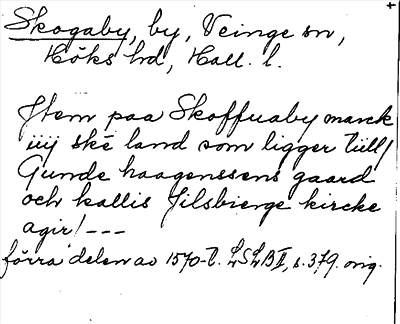 Skogaby, by, Veinge sn,
Höks hd, Hall. l.
Item paa Skoffuaby marck
iiij ske land som ligger till
Gunde haagenssens gaard
och kallis Jilsbierge kircke
agir! ---
förra delen av 1570-t. LSLB II, s. 379. orig.